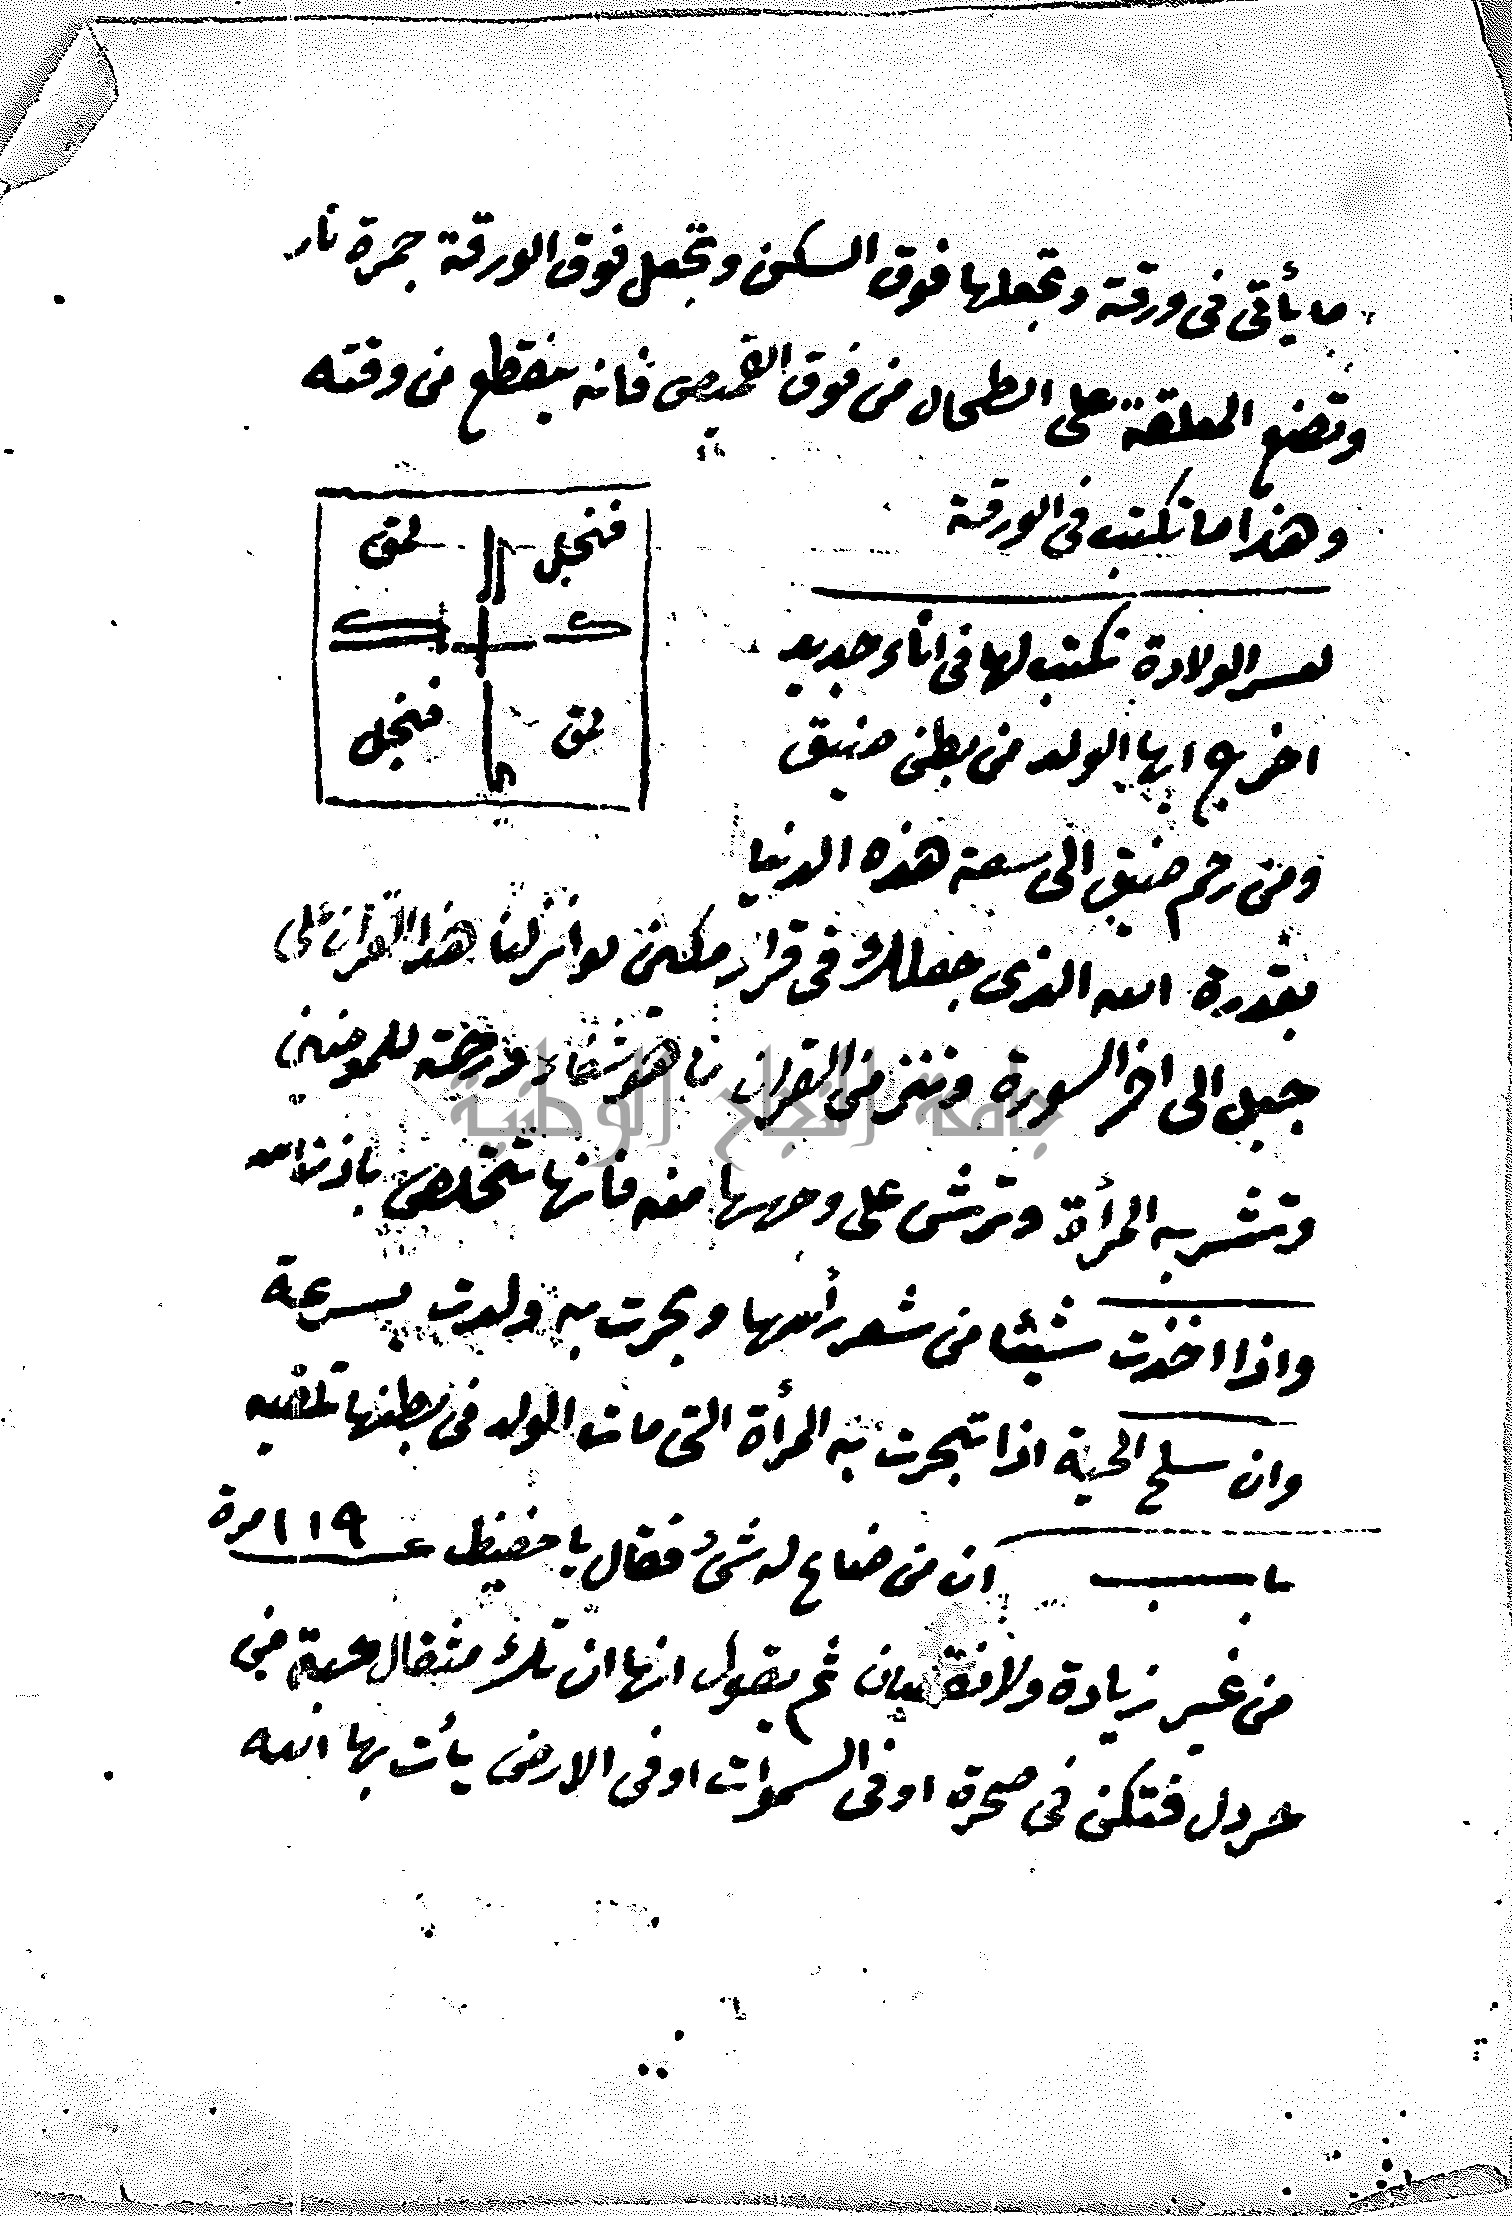 ما يأتى فى ورقة وتجعلها فوق السكين وتجعل فوق الورقة جمرة نار
وتضع المعلقة على الطحال من فوق القميص فانه ينقطع من وقته
وهذا ما تكتب فى الورقة
فنجل لمق
لمق فنجل
لعسر الولادة تكتب لها فى اناء جديد
اخرج ايها الولد من بطن ضيق
ومن رحم ضيق الى سعة هذه الدنيا
بقدرة الله الذى جعلك فى قرار مكين لو انزلنا هذا القرآن على
جبل الى اخر السورة وننزل من القران ما هو شفاء ورحمة للمومنين
وتشربه المرأة وترش على وجهها منه فانها تتخلص باذن الله
واذا اخذت شيئا من شعر رأسها وبخرت به ولدت بسرعة
وان سلخ الحية اذا تبخرت به المرأة التى مات الولد فى بطنها تلقيه
باب ان من ضاع له شئ فقال يا حفيظ ١١٩ مرة
من غير زيادة ولا نقصان ثم يقول انها ان تك مثقال حبة من
خردل فتكن فى صخرة او فى السموات او فى الارض يأت بها الله
جامعة النجاح الوطنية